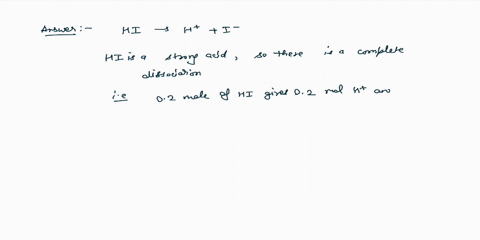 Answer:- HI → H⁺ + I⁻
HI is a strong acid, so there is a complete
dissociation
i.e 0.2 mole of HI gives 0.2 mol H⁺ an